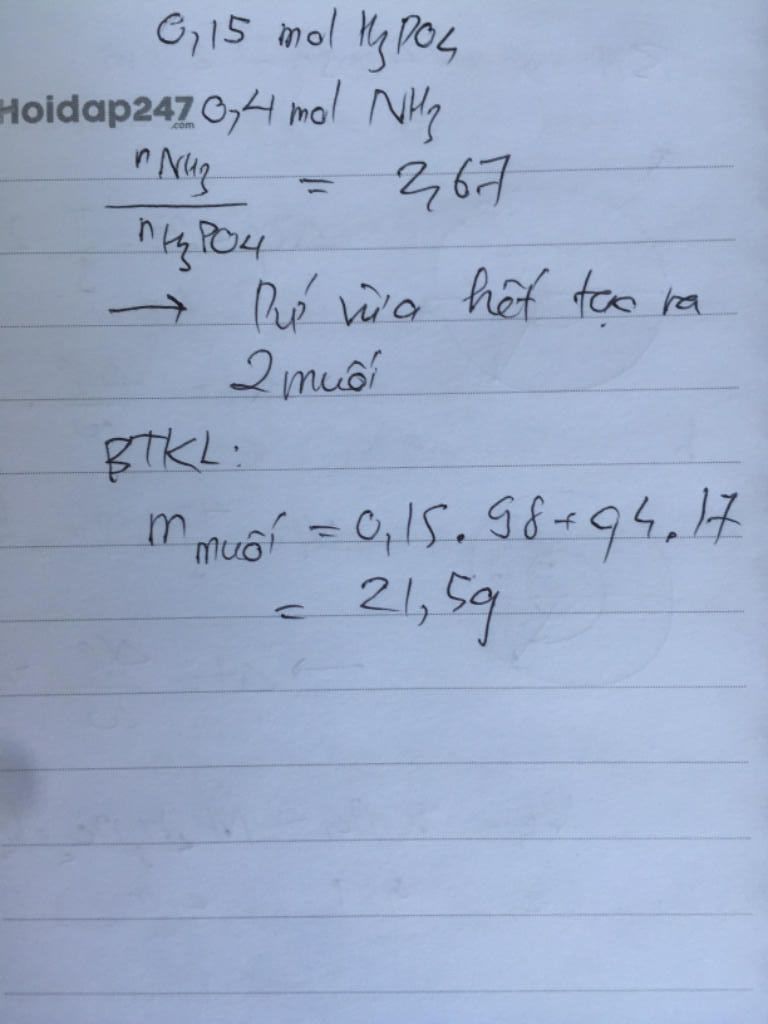 0,15 mol H3PO4
Hoidap247.com 0,4 mol NH3
nNH3 / nH3PO4 = 2,67
→ Pứ vừa hết tạo ra
2 muối
BTKL:
m muối = 0,15.98+94.17
= 21,5g